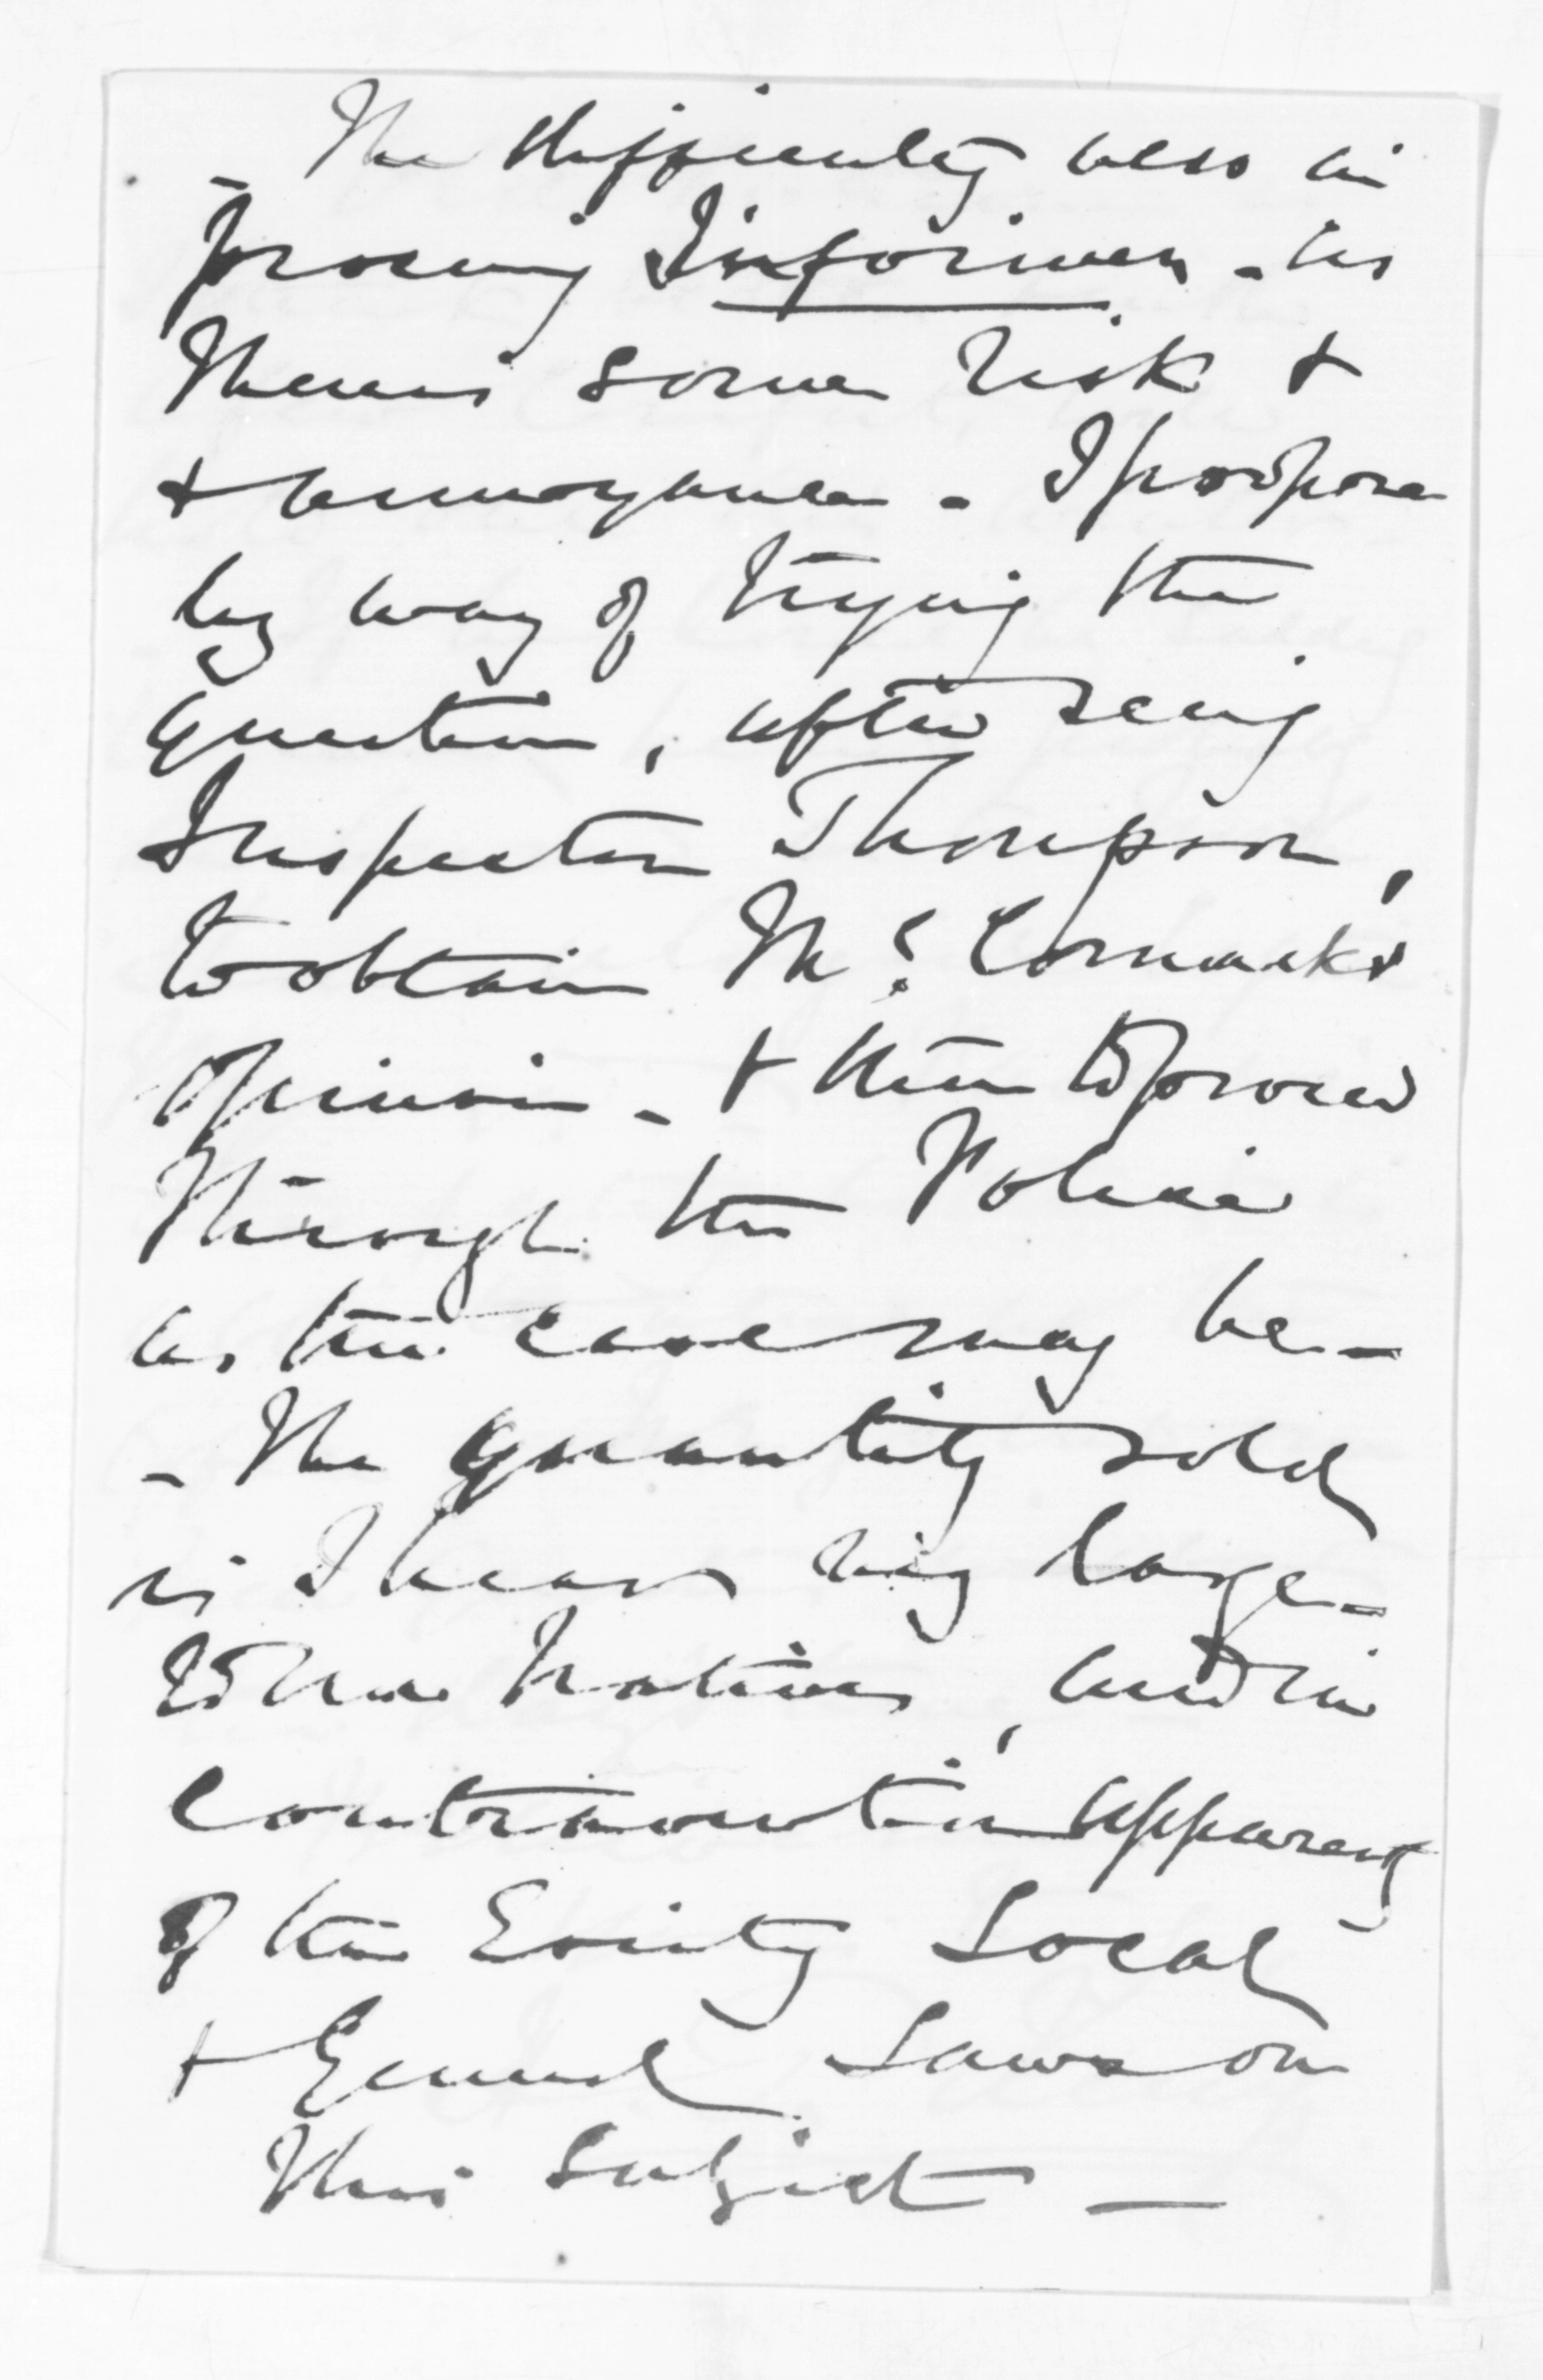 - The difficulty also in
procuring Informers - as
there is some risk &
& annoyance - I propose
by way of trying the
question, after seeing
Inspector Thompson,
to obtain Mr. Cormack's
opinion - & then to proceed
through the Police
as the case may be -
- The quantity sold
is I hear very large -
to the Natives, and in
contravention apparently
of the Existing Local
& General Laws on
this subject -